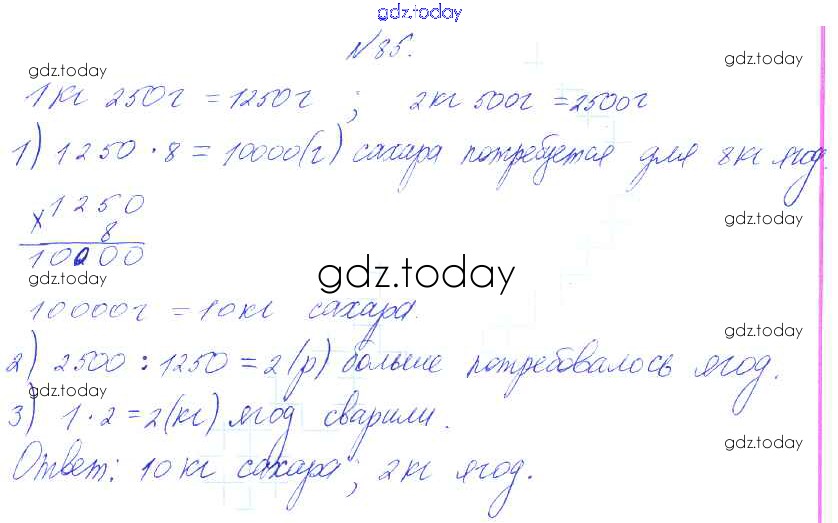 gdz.today
№85.
gdz.today
gdz.today
1кг 250г = 1250г ; 2кг 500г = 2500г
1) 1250 · 8 = 10000(г) сахара потребуется для 8кг ягод.
× 1250
8
gdz.today
10000
gdz.today
gdz.today
10000г = 10кг сахара.
gdz.today
2) 2500 : 1250 = 2 (р) больше потребовалось ягод.
gdz.today
3) 1 · 2 = 2(кг) ягод сварили.
gdz.today
Ответ: 10кг сахара; 2кг ягод.